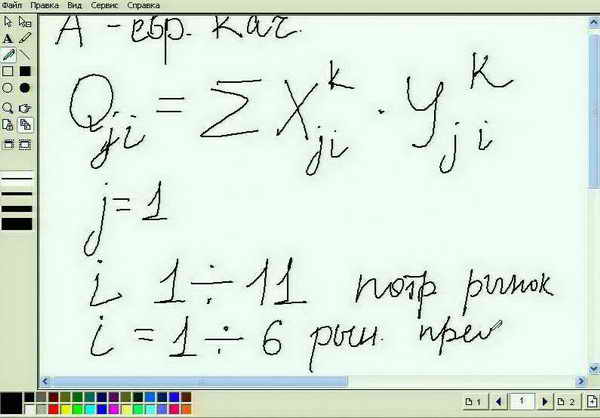 Файл Правка Вид Сервис Справка
A - евр. кач.
Q_ji = Σ X_ji^k · Y_ji^k
j = 1
i 1 ÷ 11 потр рынок
i = 1 ÷ 6 рын.
1 1 2